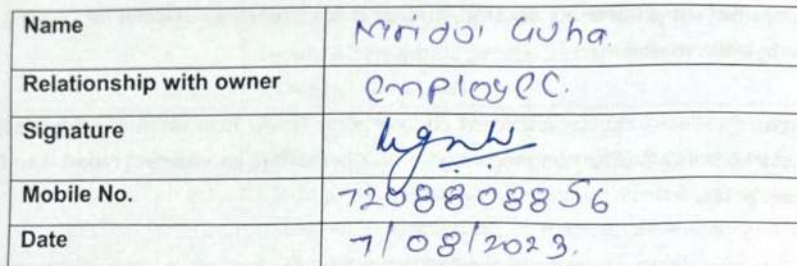 Name Mridul Guha
Relationship with owner employee.
Signature
Mobile No. 7208808856
Date 7/08/2023.